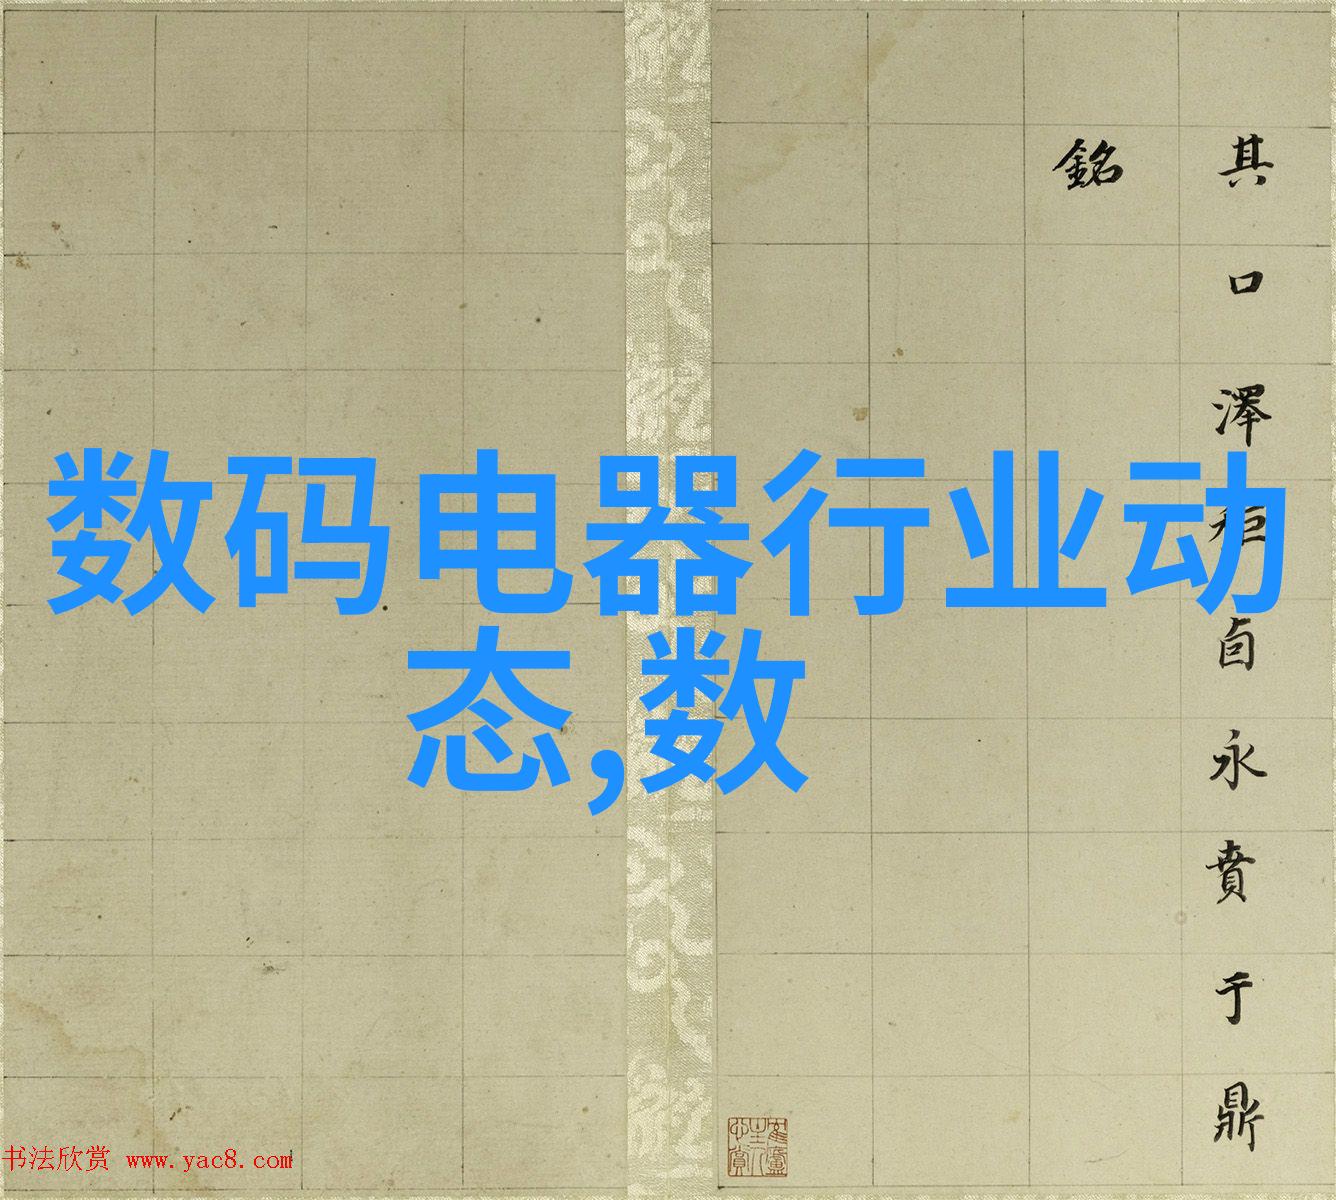 其口澤秬卣永賁于鼎
銘
数码电器行业动
态,数
书法欣赏 www.yac8.com